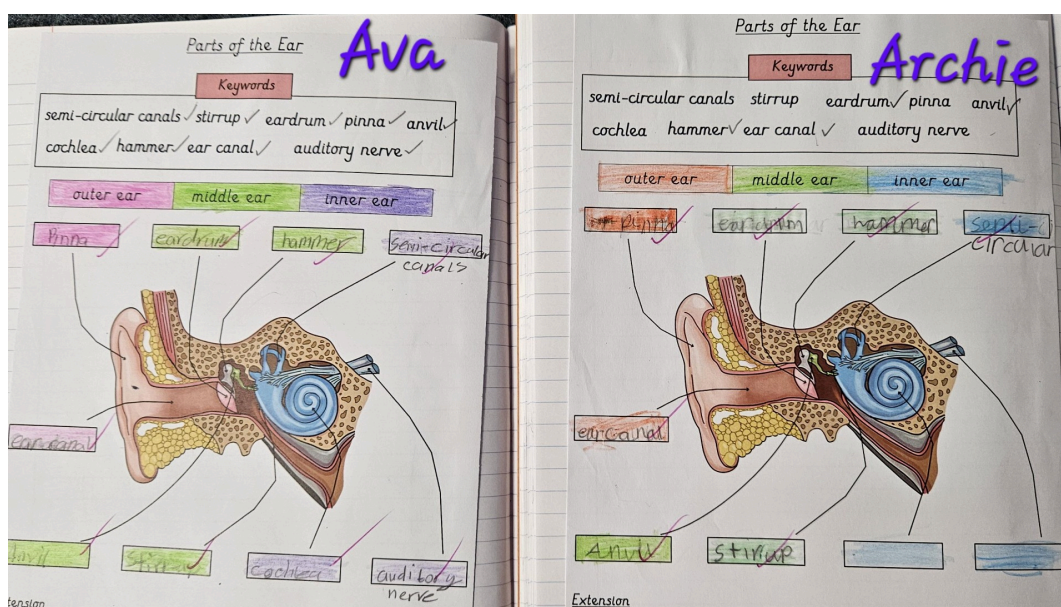 Parts of the Ear
Ava
Keywords
semi-circular canals stirrup eardrum pinna anvil
cochlea hammer ear canal auditory nerve
outer ear middle ear inner ear
Pinna eardrum hammer semi-circular
canals
ear canal
anvil stirrup cochlea audibory
nerve
tension
Parts of the Ear
Archie
Keywords
semi-circular canals stirrup eardrum pinna anvil
cochlea hammer ear canal auditory nerve
outer ear middle ear inner ear
pinna eardrum hammer semi-c
circular
ear canal
Anvil stirrup
Extension